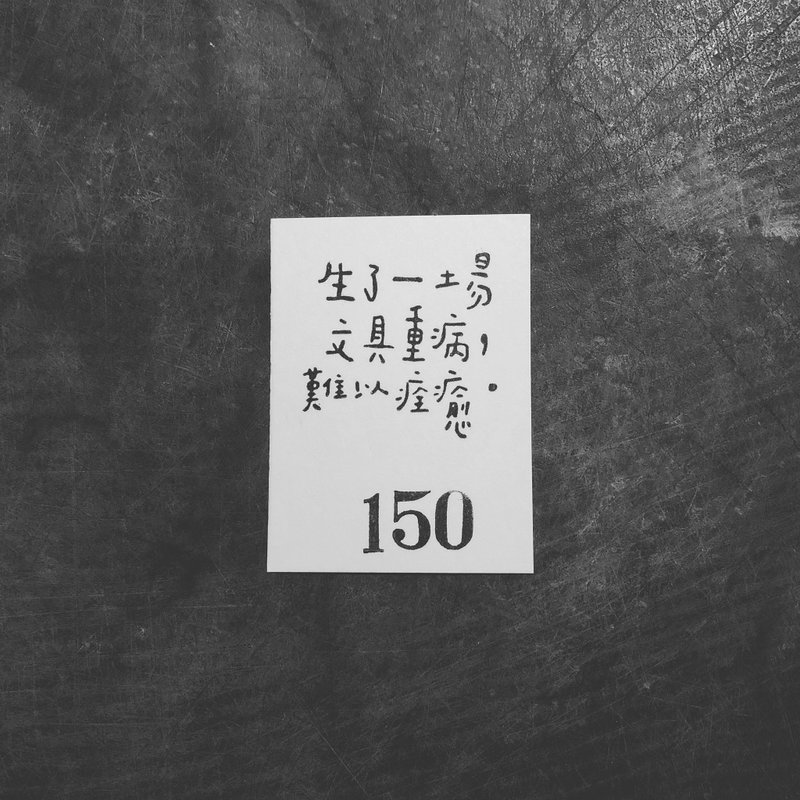 生了一場
文具重病，
難以痊癒。
150